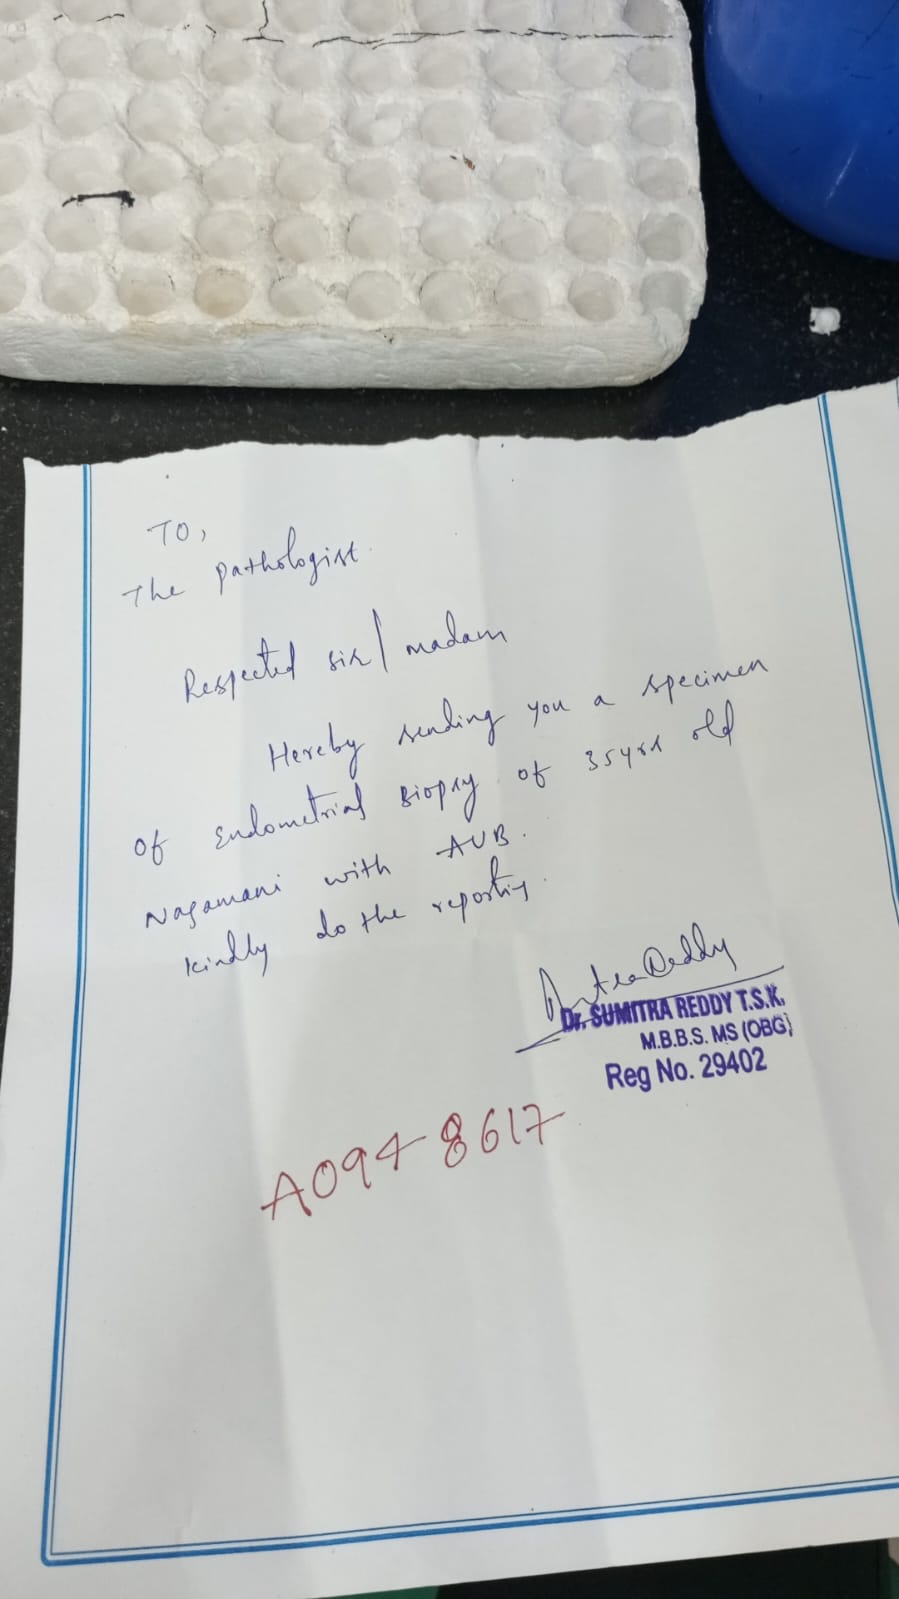 TO,
The pathologist.
Respected sir/madam
Hereby sending you a specimen
of Endometrial Biopsy of 35yrs old
Nagamani with AUB.
kindly do the reporting.
Dr. SUMITRA REDDY T.S.K.
M.B.B.S. MS (OBG)
Reg No. 29402
A094 8617